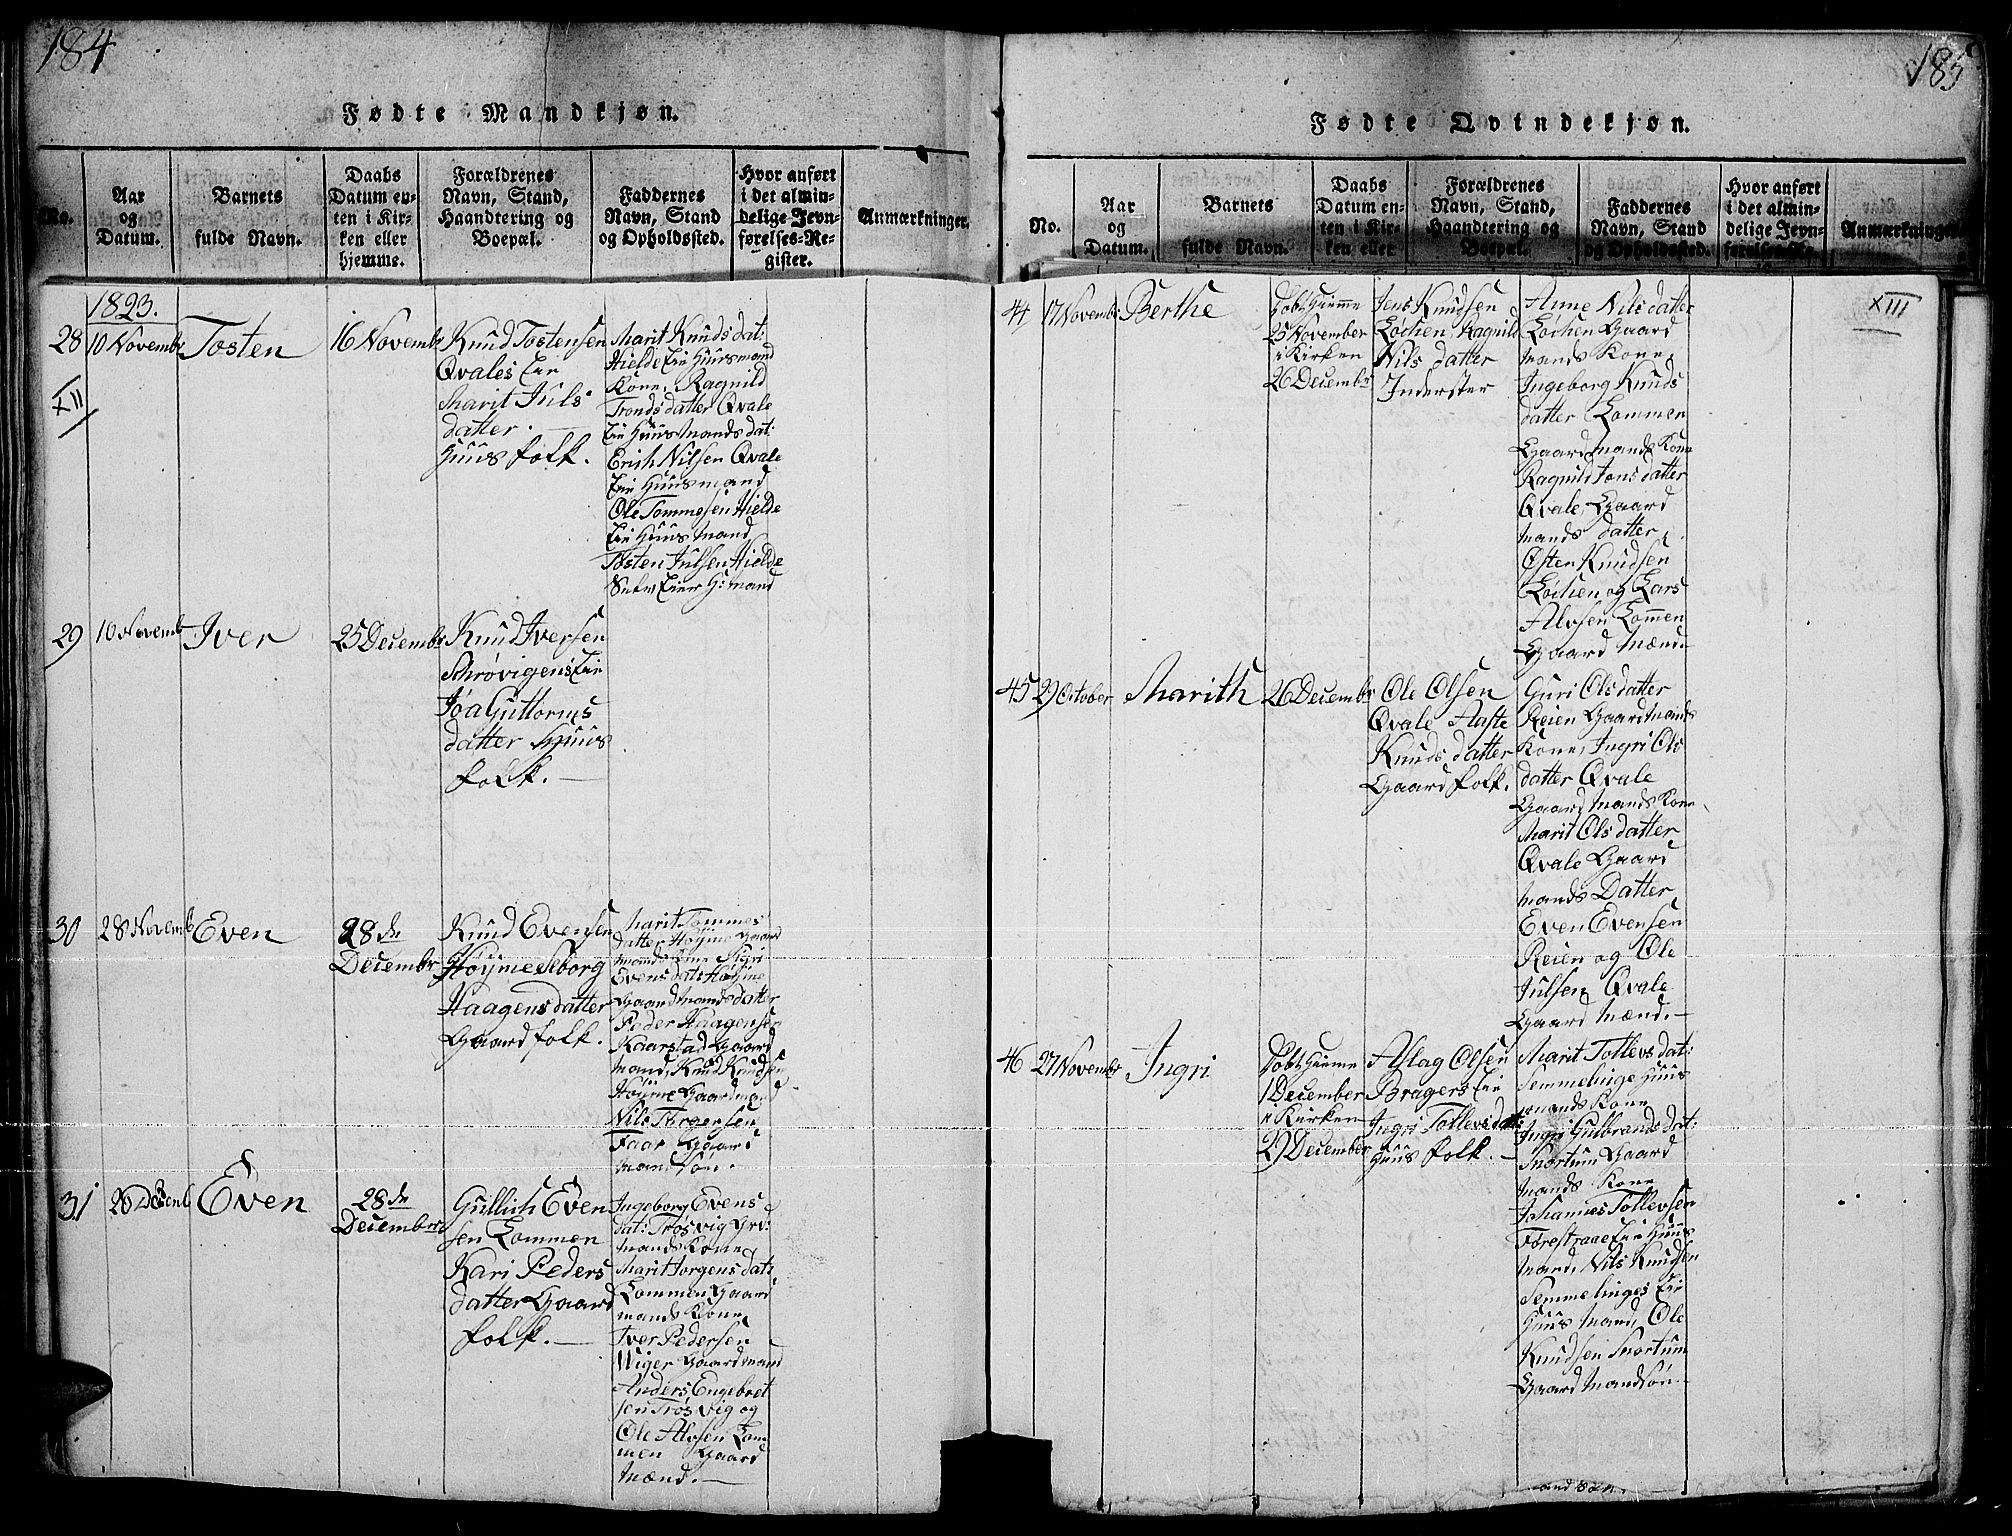 184
Fødte Mandkjøn.
No.
Aar
og
Datum.
Barnets
fulde Navn.
Daabs
Datum en-
ten i Kir-
ken eller
hjemme.
Forældrenes
Navn, Stand,
Haandtering og
Boepæl.
Faddernes
Navn, Stand
og Opholdssted.
Hvor anført
i det almin-
delige Jevn-
førelses-Re-
gister.
Anmærkninger.
1823.
28
XII
10 Novembr
Tosten
16 Novembr
Knud Tostensen
Qvales Eie
Marit Juls
datter.
Huus folk.
Marit Knudsdat:
Hielde Eie Huusmand
Kone, Ragnild
Tronds datter Qvale
Eie Huusmands dat:
Erich Nilsen Qvale
Eie Huusmand
Ole Tommesen Hielde
Eie Huus Mand
Tosten Julsen Hielde
Eier H: mand
29
10 Novemb
Iver
25 Decembr
Knud Iversen
Schrøvigens Eie
Jøa Guttorms
datter Huus
folk.
30
28 Novemb
Even
28 de
Decembr
Knud Evensen
Høyme Seborg
Haagens datter
Gaard folk.
Marit Tommes
datter Høyme Gaard
mands Kone Sigri
Evens dat: Høyme
Gaard Mands datter
Peder Haagensen
Kaarstad Gaard
mand, Knud Knudsen
Høyme Gaardmand
Nils Torgersen
Faar Gaard
mand søn.
31
26 Decemb
Even
28 de
Decembr
Gullich Even
sen Lommen
Kari Peders
datter Gaard
folk.
Ingeborg Evens
dat: Trøsvig Grd:
mands Kone
Marit Jorgens dat:
Lommen Gaard
mands Kone
Iver Pedersen
Wiger Gaardmand
Anders Engebret
sen Trøsvig og
Ole Alvsen Lom
men Gaard
Mænd.
185
Fødte Qvindekjøn.
No.
Aar
og
Datum.
Barnets
fulde Navn.
Daabs
Datum en-
ten i Kir-
ken eller
Forældrenes
Navn, Stand,
Haandtering og
Boepæl.
Faddernes
Navn, Stand
og Opholdssted.
Hvor anført
i det almin-
delige Jevn-
førelses-Re-
Anmærkninger.
XIII
44
17 Novembr
Berthe
Døbt Hiemme
25 November
i Kirken
26 Decembr
Jens Knudsen
Lochen Ragnild
Nils datter
Inderster
Anne Nils datter
Lochen Gaard
mands Kone,
Ingeborg Knuds
datter Lommen
Gaard Mands Kone
Ragnild Jons datter
Qvale, Gaard
mands datter,
Østen Knudsen
Lochen og Lars
Alvsen Lommen
Gaard Mænd.
45
29 October
Marith
26 Decembr
Ole Olsen
Qvale Aaste
Knuds datter
Gaard folk.
Guri Olsdatter
Reien Gaard Mands
Kone, Ingri Ols
datter Qvale
Gaard Mands Kone
Marit Ols datter
Qvale Gaard
mands Datter
Even Evensen
Reien og Ole
Julsen Qvale
Gaard Mænd.
46
27 November
Ingri
Døbt Hiemme
1 December
i Kirken
29 December
Aslag Olsen
Bragers Eie
Ingri Tollevs dat:
Huus folk.
Marit Tollevs dat:
Semmelinge Huus
mands Kone
Ingri Gulbrands dat:
Snortum Gaard
mands Kone
Johannes Tollevsen
Forestraae Eie Huus
Mand, Nils Knudsen
Semmelinges Eie
Huus Mand, Ole
Knudsen Snortum
Gaard Mandsøn.